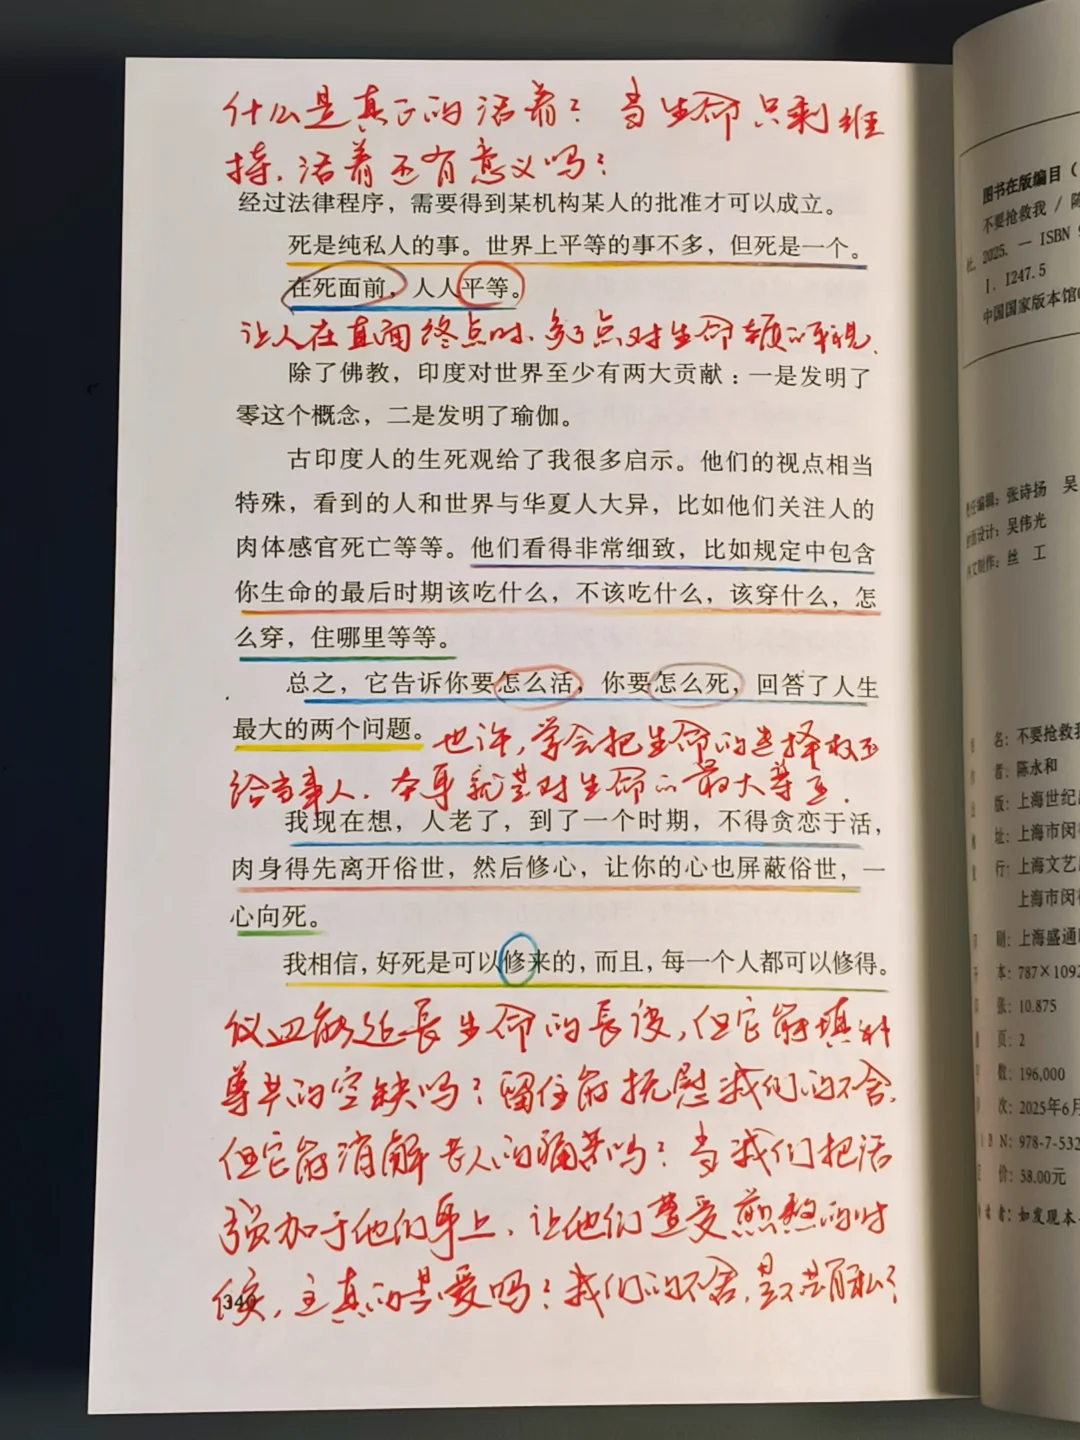 什么是真正的活着？当生命只剩维
持，活着还有意义吗？
经过法律程序，需要得到某机构某人的批准才可以成立。
死是纯私人的事。世界上平等的事不多，但死是一个。
在死面前，人人平等。
让人在直面终点时，多了点对生命 的平视.
除了佛教，印度对世界至少有两大贡献：一是发明了
零这个概念，二是发明了瑜伽。
古印度人的生死观给了我很多启示。他们的视点相当
特殊，看到的人和世界与华夏人大异，比如他们关注人的
肉体感官死亡等等。他们看得非常细致，比如规定中包含
你生命的最后时期该吃什么，不该吃什么，该穿什么，怎
么穿，住哪里等等。
总之，它告诉你要怎么活，你要怎么死，回答了人生
最大的两个问题。
也许，学会把生命的选择权还
给当事人，本身就是对生命的最大尊重.
我现在想，人老了，到了一个时期，不得贪恋于活，
肉身得先离开俗世，然后修心，让你的心也屏蔽俗世，一
心向死。
我相信，好死是可以修来的，而且，每一个人都可以修得。
仪器能延长生命的长度，但它能填补
尊严的空缺吗？留住能抚慰我们的不舍，
但它能消解老人的痛苦吗？当我们把活
强加于他们身上，让他们遭受煎熬的时
候，这真的是爱吗？我们的不舍，是不是自私？
340
图书在版编目（
不要抢救我 / 陈
社，2025. — ISBN 9
Ⅰ. I247.5
中国国家版本馆
责任编辑：张诗扬 吴
封面设计：吴伟光
内文制作：丝 工
名：不要抢救我
者：陈永和
版：上海世纪
址：上海市闵行
行：上海文艺
上海市闵行
刷：上海盛通
本：787×1092
张：10.875
页：2
数：196,000
次：2025年6月
N：978-7-532
价：58.00元
者：如发现本